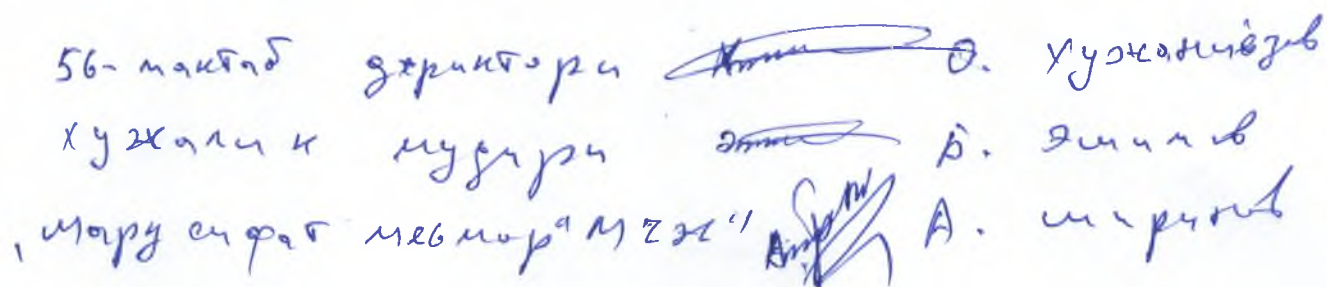 56-мактаб директори О. Хужаниёзов
хужалик мудири Б. Эшимов
„Мару сифат меъмор" МЧЖ" А. шарипов